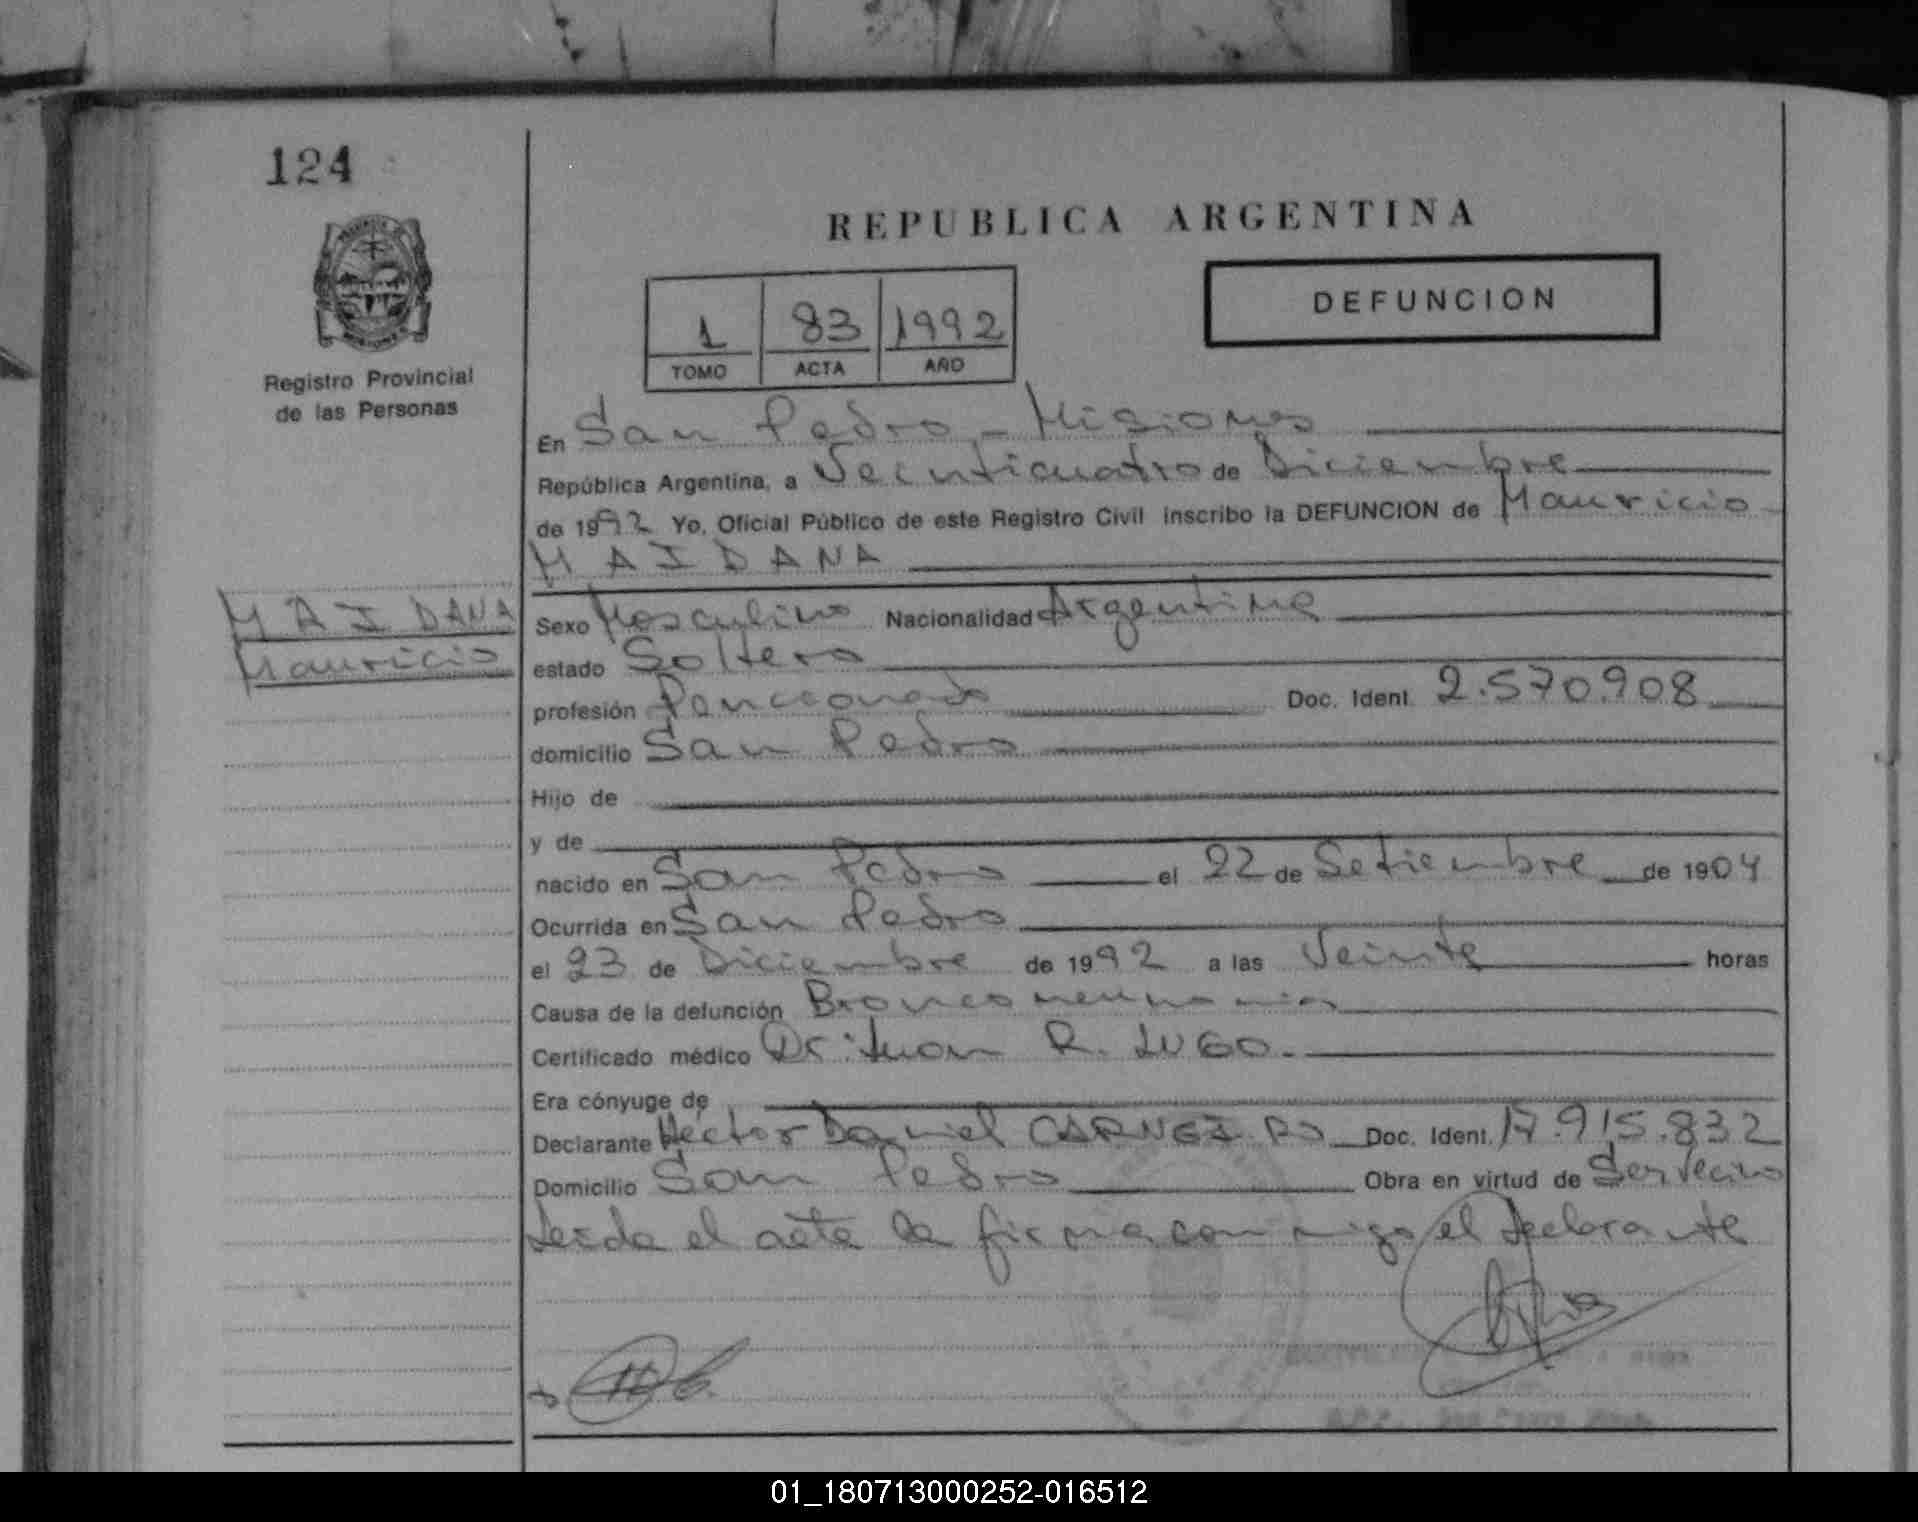 124
REPUBLICA ARGENTINA
DEFUNCION
1 83 1992
TOMO ACTA AÑO
Registro Provincial
de las Personas
En San Pedro - Misiones
República Argentina, a Veinticuatro de Diciembre
de 1992 Yo, Oficial Público de este Registro Civil inscribo la DEFUNCION de Mauricio
MAIDANA
MAIDANA
Mauricio
Sexo Masculino Nacionalidad Argentina
estado Soltero
profesión Pencionado Doc. Ident. 2.570.908
domicilio San Pedro
Hijo de
y de
nacido en San Pedro el 22 de Setiembre de 1904
Ocurrida en San Pedro
el 23 de Diciembre de 1992 a las Veinte horas
Causa de la defunción Bronconeumonia
Certificado médico Dr: Juan R. LUGO.
Era cónyuge de
Declarante Héctor Daniel Doc. Ident. 17.915.832
Domicilio San Pedro Obra en virtud de
Leida el acta la firma conmigo el declarante
01_180713000252-016512